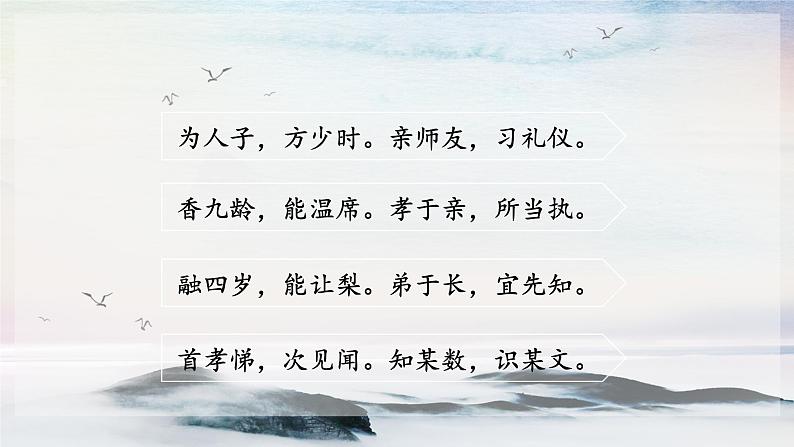 为人子，方少时。亲师友，习礼仪。
香九龄，能温席。孝于亲，所当执。
融四岁，能让梨。弟于长，宜先知。
首孝悌，次见闻。知某数，识某文。